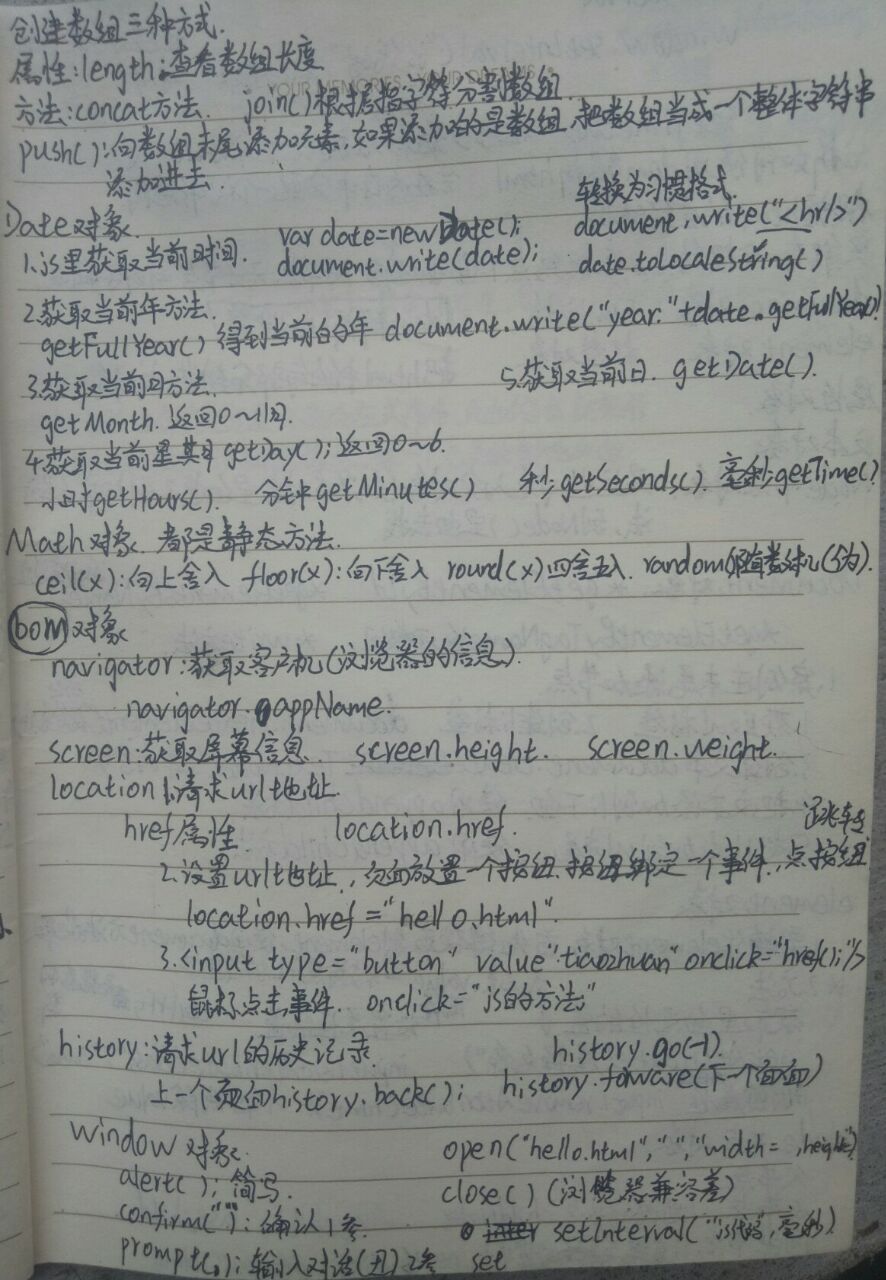 创建数组三种方式.
属性:length:查看数组长度
YOUR MEMORIES YOUR DREAMS
方法:concat方法. join()根据指字符分割数组
push():向数组末尾添加元素,如果添加的是数组,把数组当成一个整体字符串
添加进去.
转换为习惯格式.
Date对象. var date=new Date(); document.write("<hr/>")
1.js里获取当前时间. document.write(date); date.toLocaleString()
2.获取当前年方法.
getFullYear() 得到当前的年 document.write("year:"+date.getFullYear()
3.获取当前月方法. 5.获取当前日. getDate().
getMonth. 返回0~11月.
4.获取当前星期 getDay();返回0~6.
小时getHours(). 分钟getMinutes() 秒;getSeconds(). 毫秒;getTime()
Math对象. 都是静态方法.
ceil(x):向上舍入 floor(x):向下舍入 round(x)四舍五入. random()随机数(伪).
bom对象
navigator:获取客户机(浏览器的信息).
navigator.appName.
screen:获取屏幕信息. screen.height. screen.weight.
location:1.请求url地址.
href属性 location.href.
2.设置url地址., 页面放置一个按钮.按钮绑定一个事件,点按钮
location.href="hello.html".
3.<input type="button" value":tiaozhuan" onclick="href();"/>
鼠标点击事件. onclick="js的方法"
history:请求url的历史记录. history.go(-1).
上一个页面history.back(); history.foware(下一个页面)
window对象. open("hello.html","","width= ,height=")
alert();简写. close() (浏览器兼容差)
confirm(""):确认1参. setInterval("js代码",毫秒)
prompt(,);输入对话(丑)2参 set